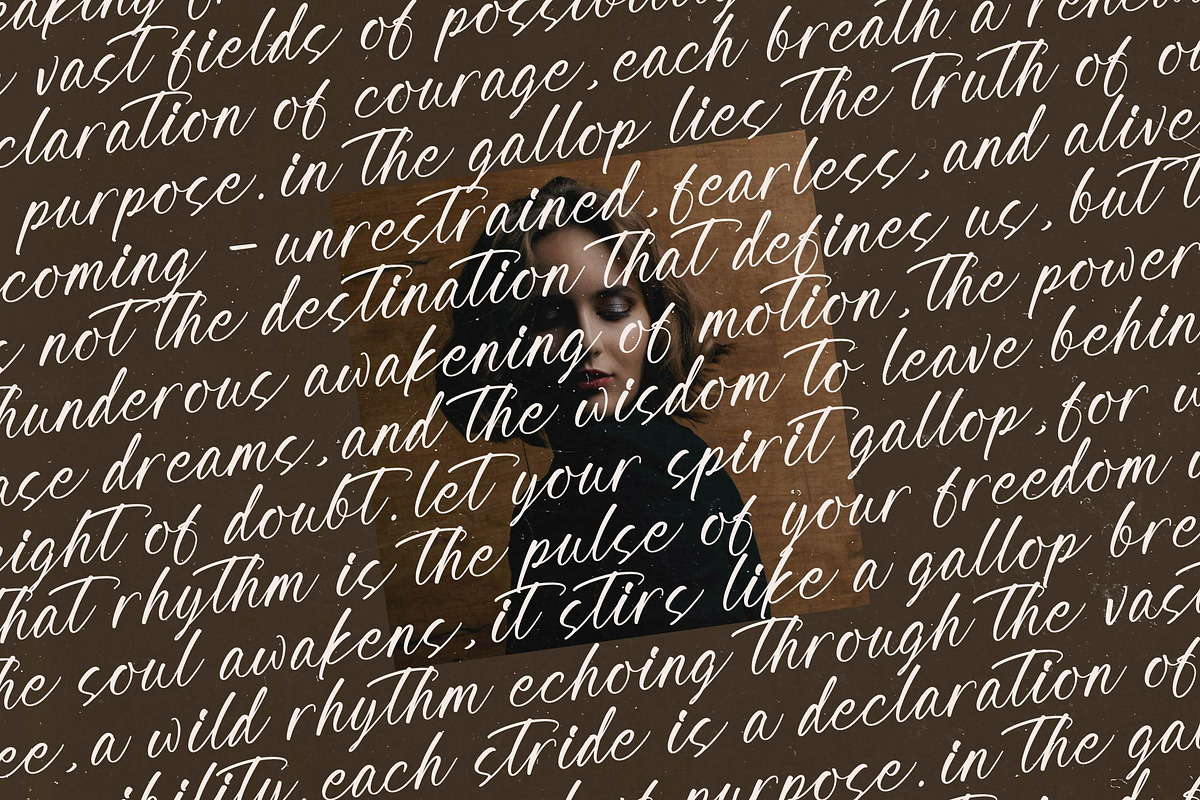 vast fields of
claration of courage, each breath a
purpose. in the gallop lies the truth of
coming - unrestrained, fearless, and alive
not the destination that defines us, but
thunderous awakening of motion, the power
dreams, and the wisdom to leave
of doubt. let your spirit gallop, for
that rhythm is the pulse of your freedom
the soul awakens, it stirs like a gallop
a wild rhythm echoing through the
each stride is a declaration of
purpose. in the